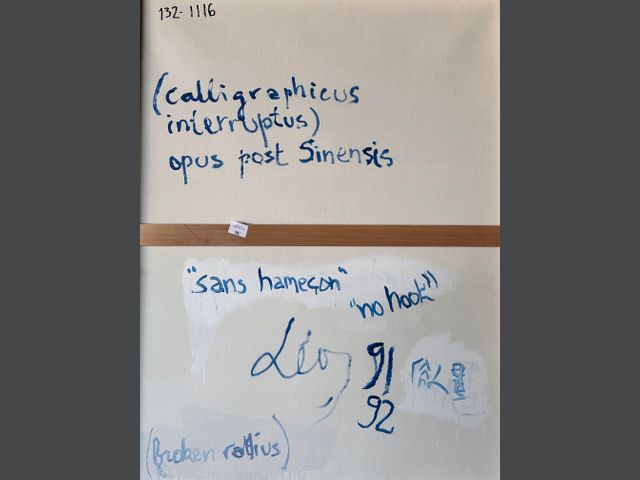 132-1116
(calligraphicus
interruptus)
opus post Sinensis
"sans hameçon"
"no hook"
Léo 91
92
(broken radius)